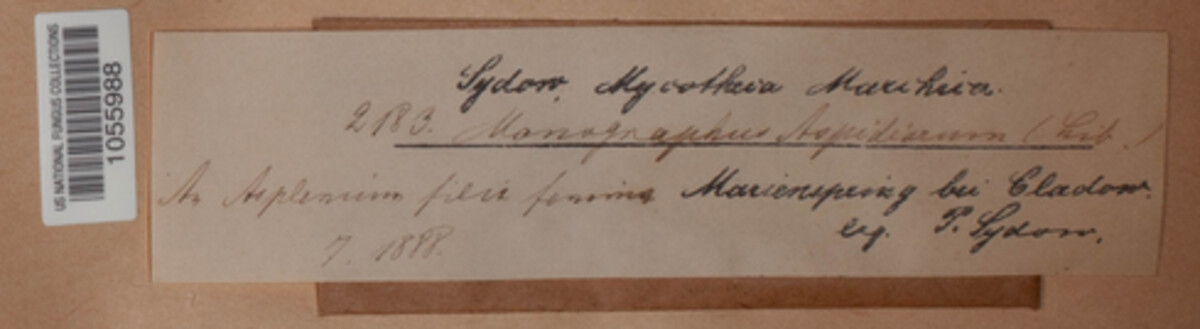 US NATIONAL FUNGUS COLLECTIONS
1055988
Sydow, Mycotheca Marchica.
2183. Monographus Aspidiorum (Lib.)
An Asplenium filix femina Marienspring bei Cladow.
7. 1888.
leg. P. Sydow.